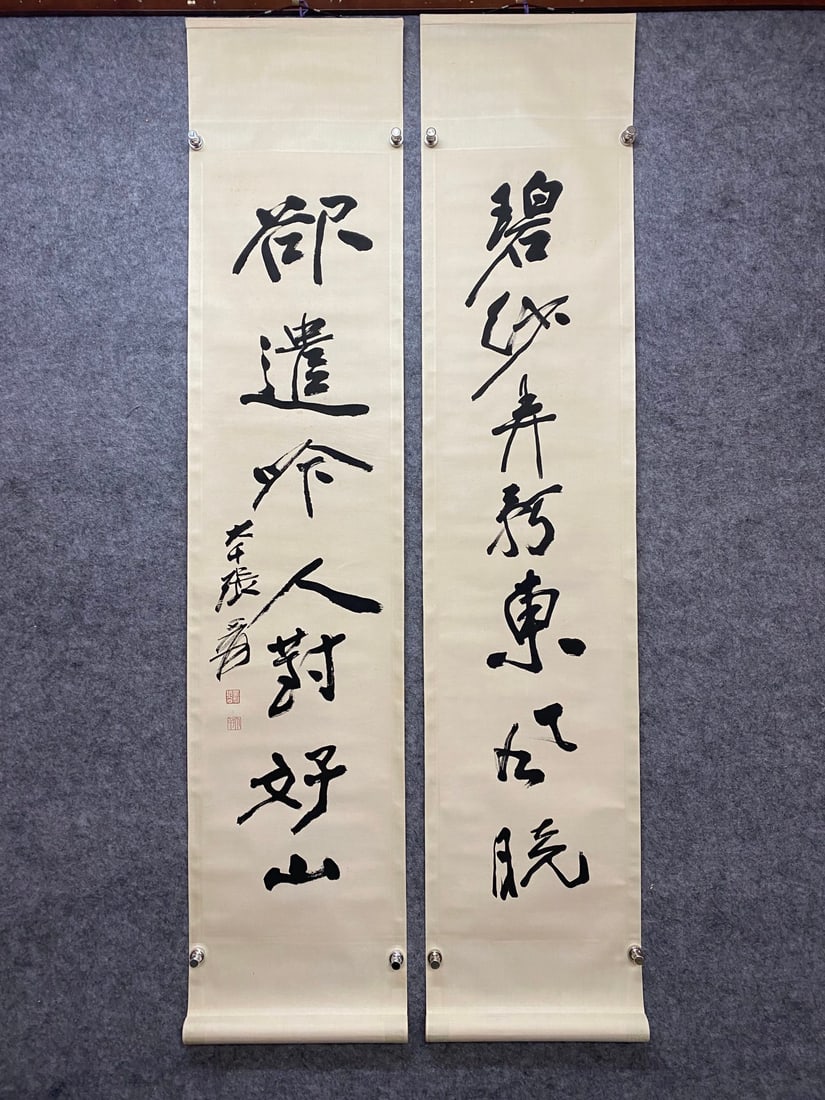 碧紗弄影東風曉
卻遣吟人對好山
大千張爰